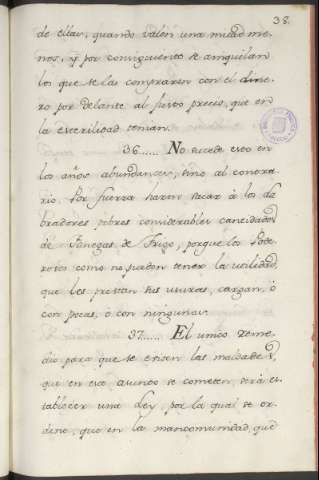 38.
de ellas, quando valen una mitad me-
nos, y por consiguiente se aniquilan
los que se las compraren con el dine-
ro por delante al justo precio, que en
la esterilidad tenian.
36...... No sucede esto en
los años abundantes, sino al contra-
rio. Por fuerza hacen sacar à los la-
bradores pobres considerables cantidades
de fanegas de Trigo, porque los Pode-
rosos como no pierdan tener la utilidad,
que les prestan sus usuras, cargan, ó
con pocas, ó con ningunas.
37...... El unico reme-
dio para que se eviten las maldades,
que en este asunto se cometen, será es-
tablecer una Ley, por la qual se or-
dene, que en la mancomunidad, que